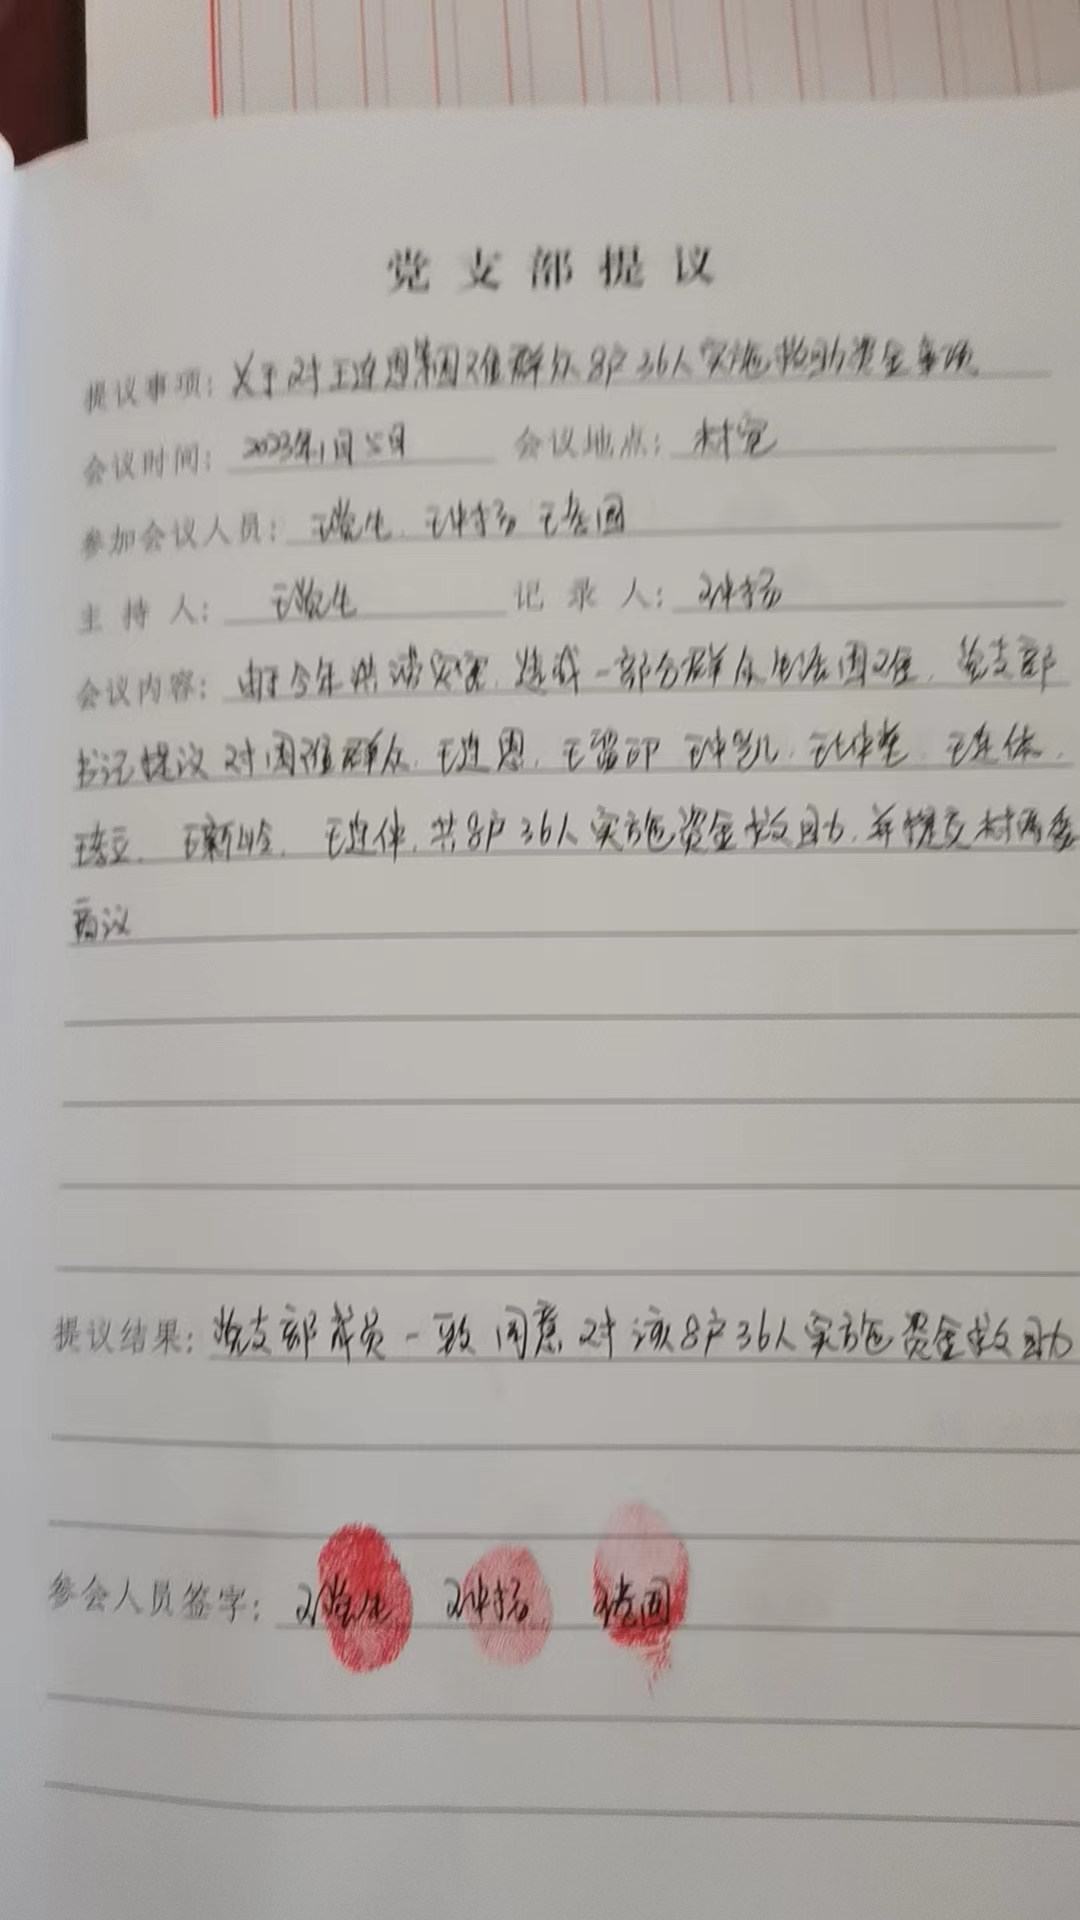 党支部提议
提议事项：关于对王连恩等困难群众8户36人实施救助资金事项
会议时间：2023年1月5日 会议地点：村室
参加会议人员：王党生、王冲扬 王 国
主持人：王党生 记录人：王冲扬
会议内容：由于今年洪涝灾害，造成一部分群众生活困难，党支部
书记提议对困难群众，王连恩，王留印 王冲 ，王 ，王连体，
王 ，王新岭，王连伴，共8户36人实施资金救助，并提交村两委
商议
提议结果：党支部成员一致同意对该8户36人实施资金救助
参会人员签字：王党生 王冲扬 国